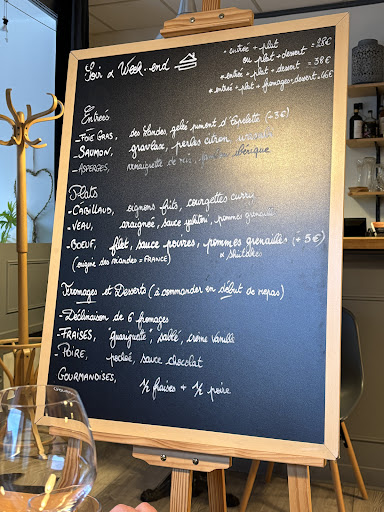 Soir & Week-end
* entrée + plat
ou plat + dessert = 28€
* entrée + plat + dessert = 38€
* entrée + plat + fromages + dessert = 46€
Entrées
- FOIE GRAS, des Landes, gelée piment d'Espelette (+3€)
- SAUMON, gravlax, perles citron
- ASPERGES, vinaigrette de ibérique
Plats
- CABILLAUD, oignons frits, courgettes curry
- VEAU, araignée, sauce pommes grenailles
- BOEUF, filet, sauce poivres, pommes grenailles (+5€)
(origine des viandes = FRANCE) * Shiitakes
Fromages et Desserts (à commander en début de repas)
- Déclinaison de 6 fromages
- FRAISES, "guariguette", sablé, crème vanille
- POIRE, pochée, sauce chocolat
GOURMANDISES, ½ fraises + ½ poire